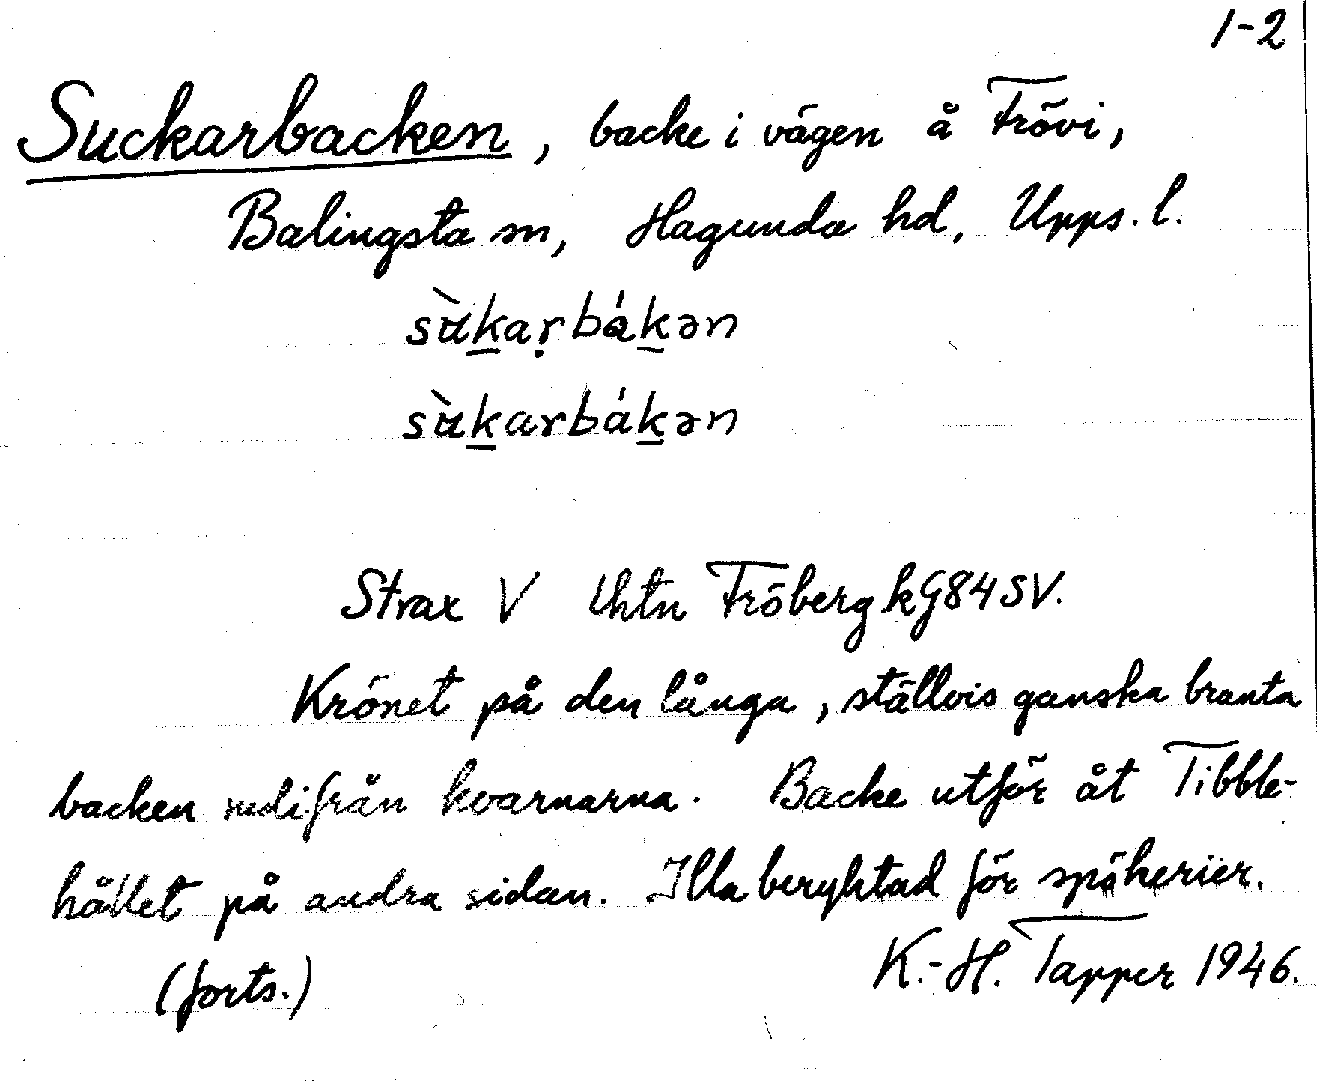 1-2
Suckarbacken, backe i vägen å Frövi,
Balingsta sn, Hagunda hd, Upps. l.
sù̈kaṛbákən
sù̈karbákən
Strax V lhtn Fröberg kG84SV.
Krönet på den långa, ställvis ganska branta
backen nedifrån kvarnarna. Backe utför åt Tibble-
hållet på andra sidan. Illa beryktad för spökerier.
(forts.) K.-H. Tapper 1946.